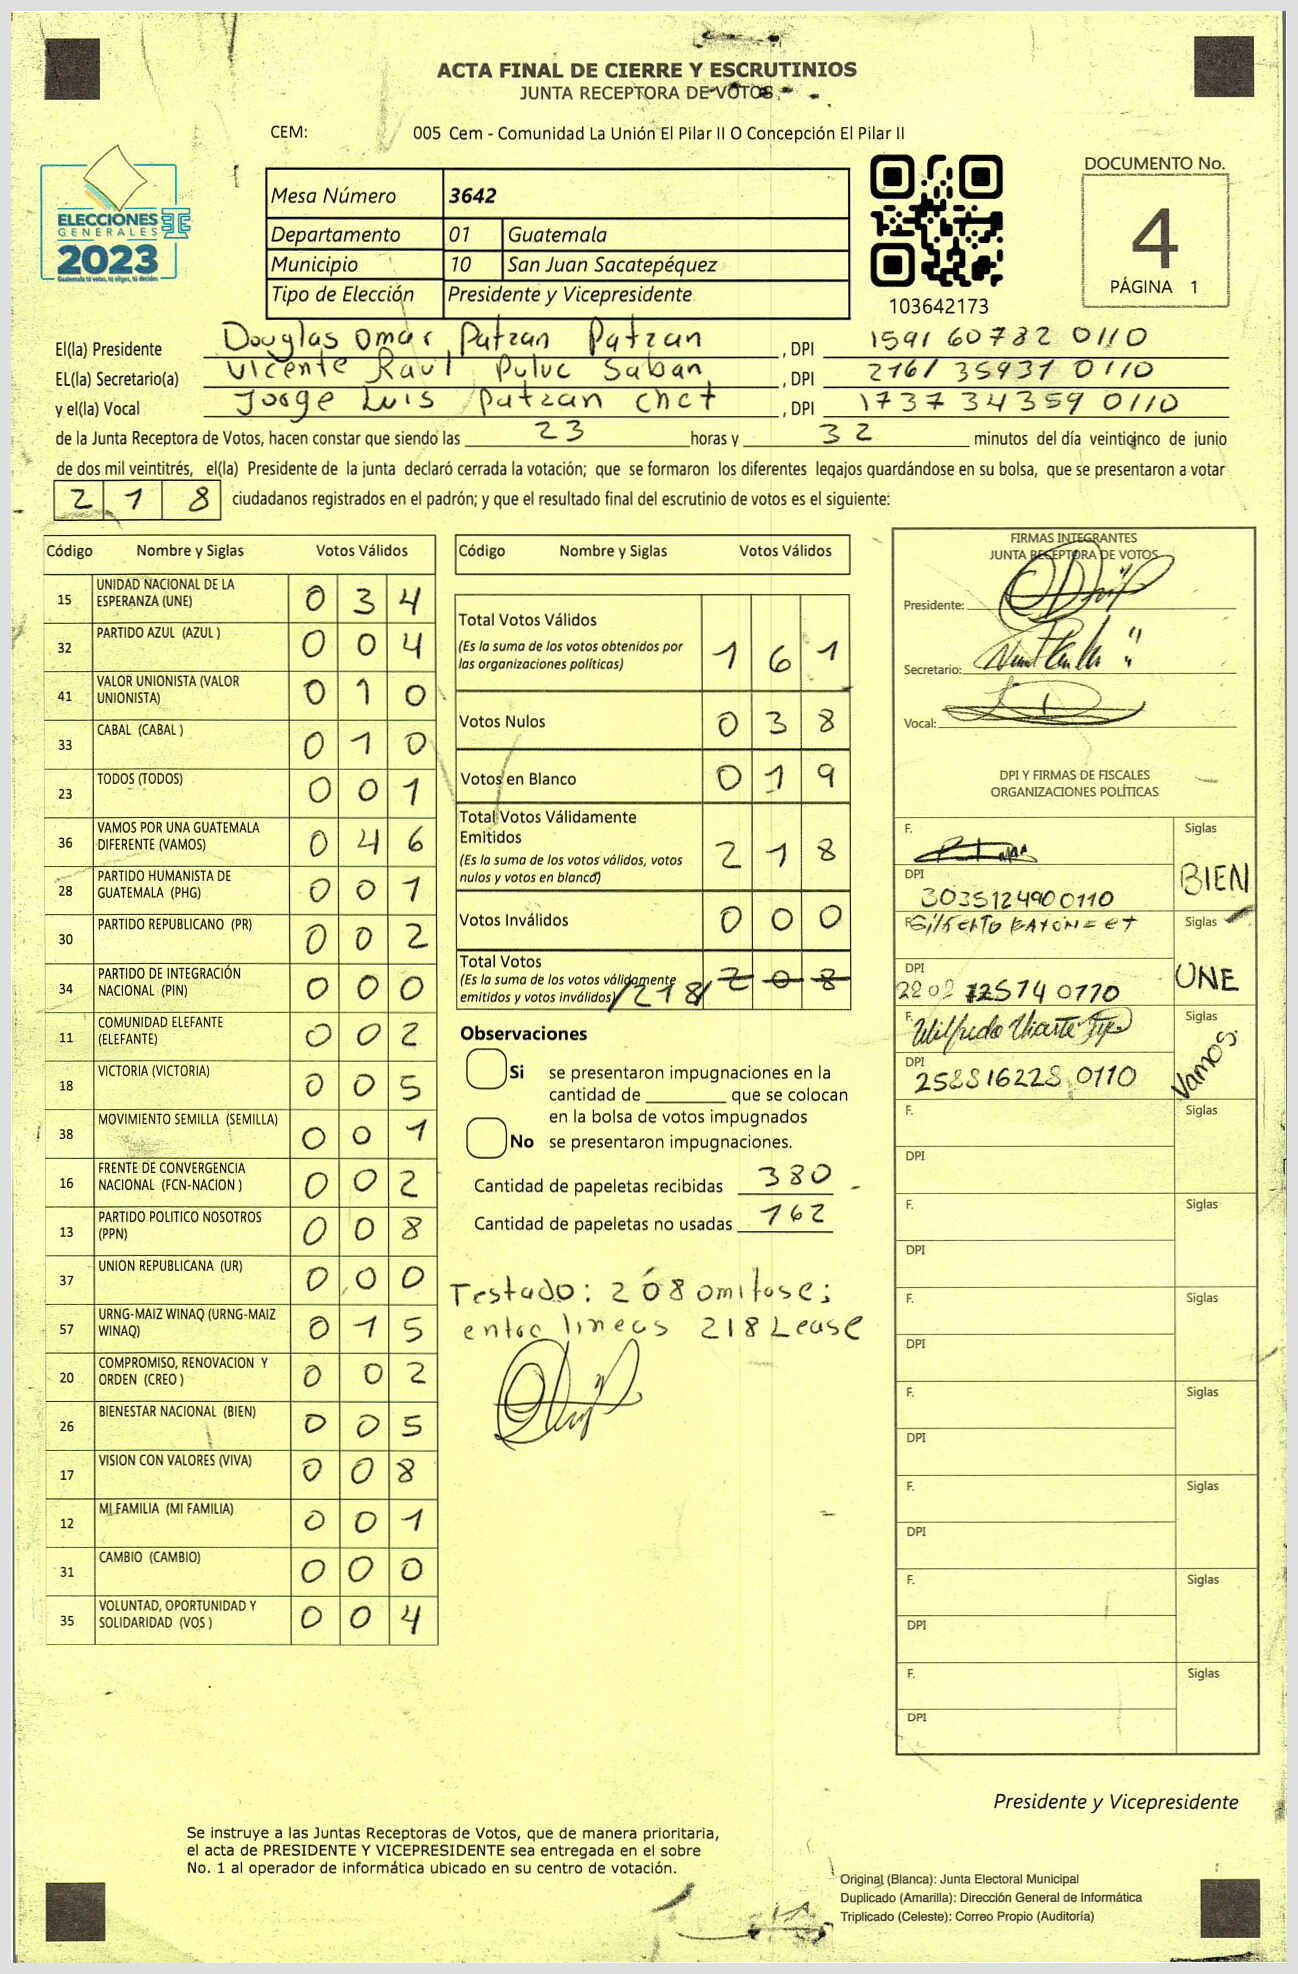 ACTA FINAL DE CIERRE Y ESCRUTINIOS
JUNTA RECEPTORA DE VOTOS
CEM: 005 Cem - Comunidad La Unión El Pilar II O Concepción El Pilar II
ELECCIONES
GENERALES
2023
Guatemala tú votas, tú eliges, tú decides
Mesa Número 3642
Departamento 01 Guatemala
Municipio 10 San Juan Sacatepéquez
Tipo de Elección Presidente y Vicepresidente
103642173
DOCUMENTO No.
4
PÁGINA 1
El(la) Presidente Douglas Omar Patzan Patzan , DPI 1591 60782 0110
EL(la) Secretario(a) Vicente Raul Puluc Saban , DPI 2161 35931 0110
y el(la) Vocal Jorge Luis Patzan Chet , DPI 1737 34359 0110
de la Junta Receptora de Votos, hacen constar que siendo las 23 horas y 32 minutos del día veinticinco de junio
de dos mil veintitrés, el(la) Presidente de la junta declaró cerrada la votación; que se formaron los diferentes legajos guardándose en su bolsa, que se presentaron a votar
2 1 8 ciudadanos registrados en el padrón; y que el resultado final del escrutinio de votos es el siguiente:
Código Nombre y Siglas Votos Válidos
15 UNIDAD NACIONAL DE LA ESPERANZA (UNE) 0 3 4
32 PARTIDO AZUL (AZUL ) 0 0 4
41 VALOR UNIONISTA (VALOR UNIONISTA) 0 1 0
33 CABAL (CABAL ) 0 1 0
23 TODOS (TODOS) 0 0 1
36 VAMOS POR UNA GUATEMALA DIFERENTE (VAMOS) 0 4 6
28 PARTIDO HUMANISTA DE GUATEMALA (PHG) 0 0 1
30 PARTIDO REPUBLICANO (PR) 0 0 2
34 PARTIDO DE INTEGRACIÓN NACIONAL (PIN) 0 0 0
11 COMUNIDAD ELEFANTE (ELEFANTE) 0 0 2
18 VICTORIA (VICTORIA) 0 0 5
38 MOVIMIENTO SEMILLA (SEMILLA) 0 0 1
16 FRENTE DE CONVERGENCIA NACIONAL (FCN-NACION ) 0 0 2
13 PARTIDO POLITICO NOSOTROS (PPN) 0 0 8
37 UNION REPUBLICANA (UR) 0 0 0
57 URNG-MAIZ WINAQ (URNG-MAIZ WINAQ) 0 1 5
20 COMPROMISO, RENOVACION Y ORDEN (CREO ) 0 0 2
26 BIENESTAR NACIONAL (BIEN) 0 0 5
17 VISION CON VALORES (VIVA) 0 0 8
12 MI FAMILIA (MI FAMILIA) 0 0 1
31 CAMBIO (CAMBIO) 0 0 0
35 VOLUNTAD, OPORTUNIDAD Y SOLIDARIDAD (VOS ) 0 0 4
Código Nombre y Siglas Votos Válidos
Total Votos Válidos 1 6 1
(Es la suma de los votos obtenidos por
las organizaciones políticas)
Votos Nulos 0 3 8
Votos en Blanco 0 1 9
Total Votos Válidamente
Emitidos 2 1 8
(Es la suma de los votos válidos, votos
nulos y votos en blanco)
Votos Inválidos 0 0 0
Total Votos 2 0 8
(Es la suma de los votos válidamente
emitidos y votos inválidos) /218/
Observaciones
Si se presentaron impugnaciones en la
cantidad de ________ que se colocan
en la bolsa de votos impugnados
No se presentaron impugnaciones.
Cantidad de papeletas recibidas 380
Cantidad de papeletas no usadas 162
Testado: 208 omitase;
entre lineas 218 Lease
FIRMAS INTEGRANTES
JUNTA RECEPTORA DE VOTOS
Presidente:
Secretario:
Vocal:
DPI Y FIRMAS DE FISCALES
ORGANIZACIONES POLÍTICAS
F. Siglas BIEN
DPI 3035124900110
F. Siglas UNE
DPI 0110
F. Wilfredo Siglas Vamos
DPI 258816228 0110
F. Siglas
DPI
F. Siglas
DPI
F. Siglas
DPI
F. Siglas
DPI
F. Siglas
DPI
F. Siglas
DPI
F. Siglas
DPI
Presidente y Vicepresidente
Se instruye a las Juntas Receptoras de Votos, que de manera prioritaria,
el acta de PRESIDENTE Y VICEPRESIDENTE sea entregada en el sobre
No. 1 al operador de informática ubicado en su centro de votación.
Original (Blanca): Junta Electoral Municipal
Duplicado (Amarilla): Dirección General de Informática
Triplicado (Celeste): Correo Propio (Auditoría)